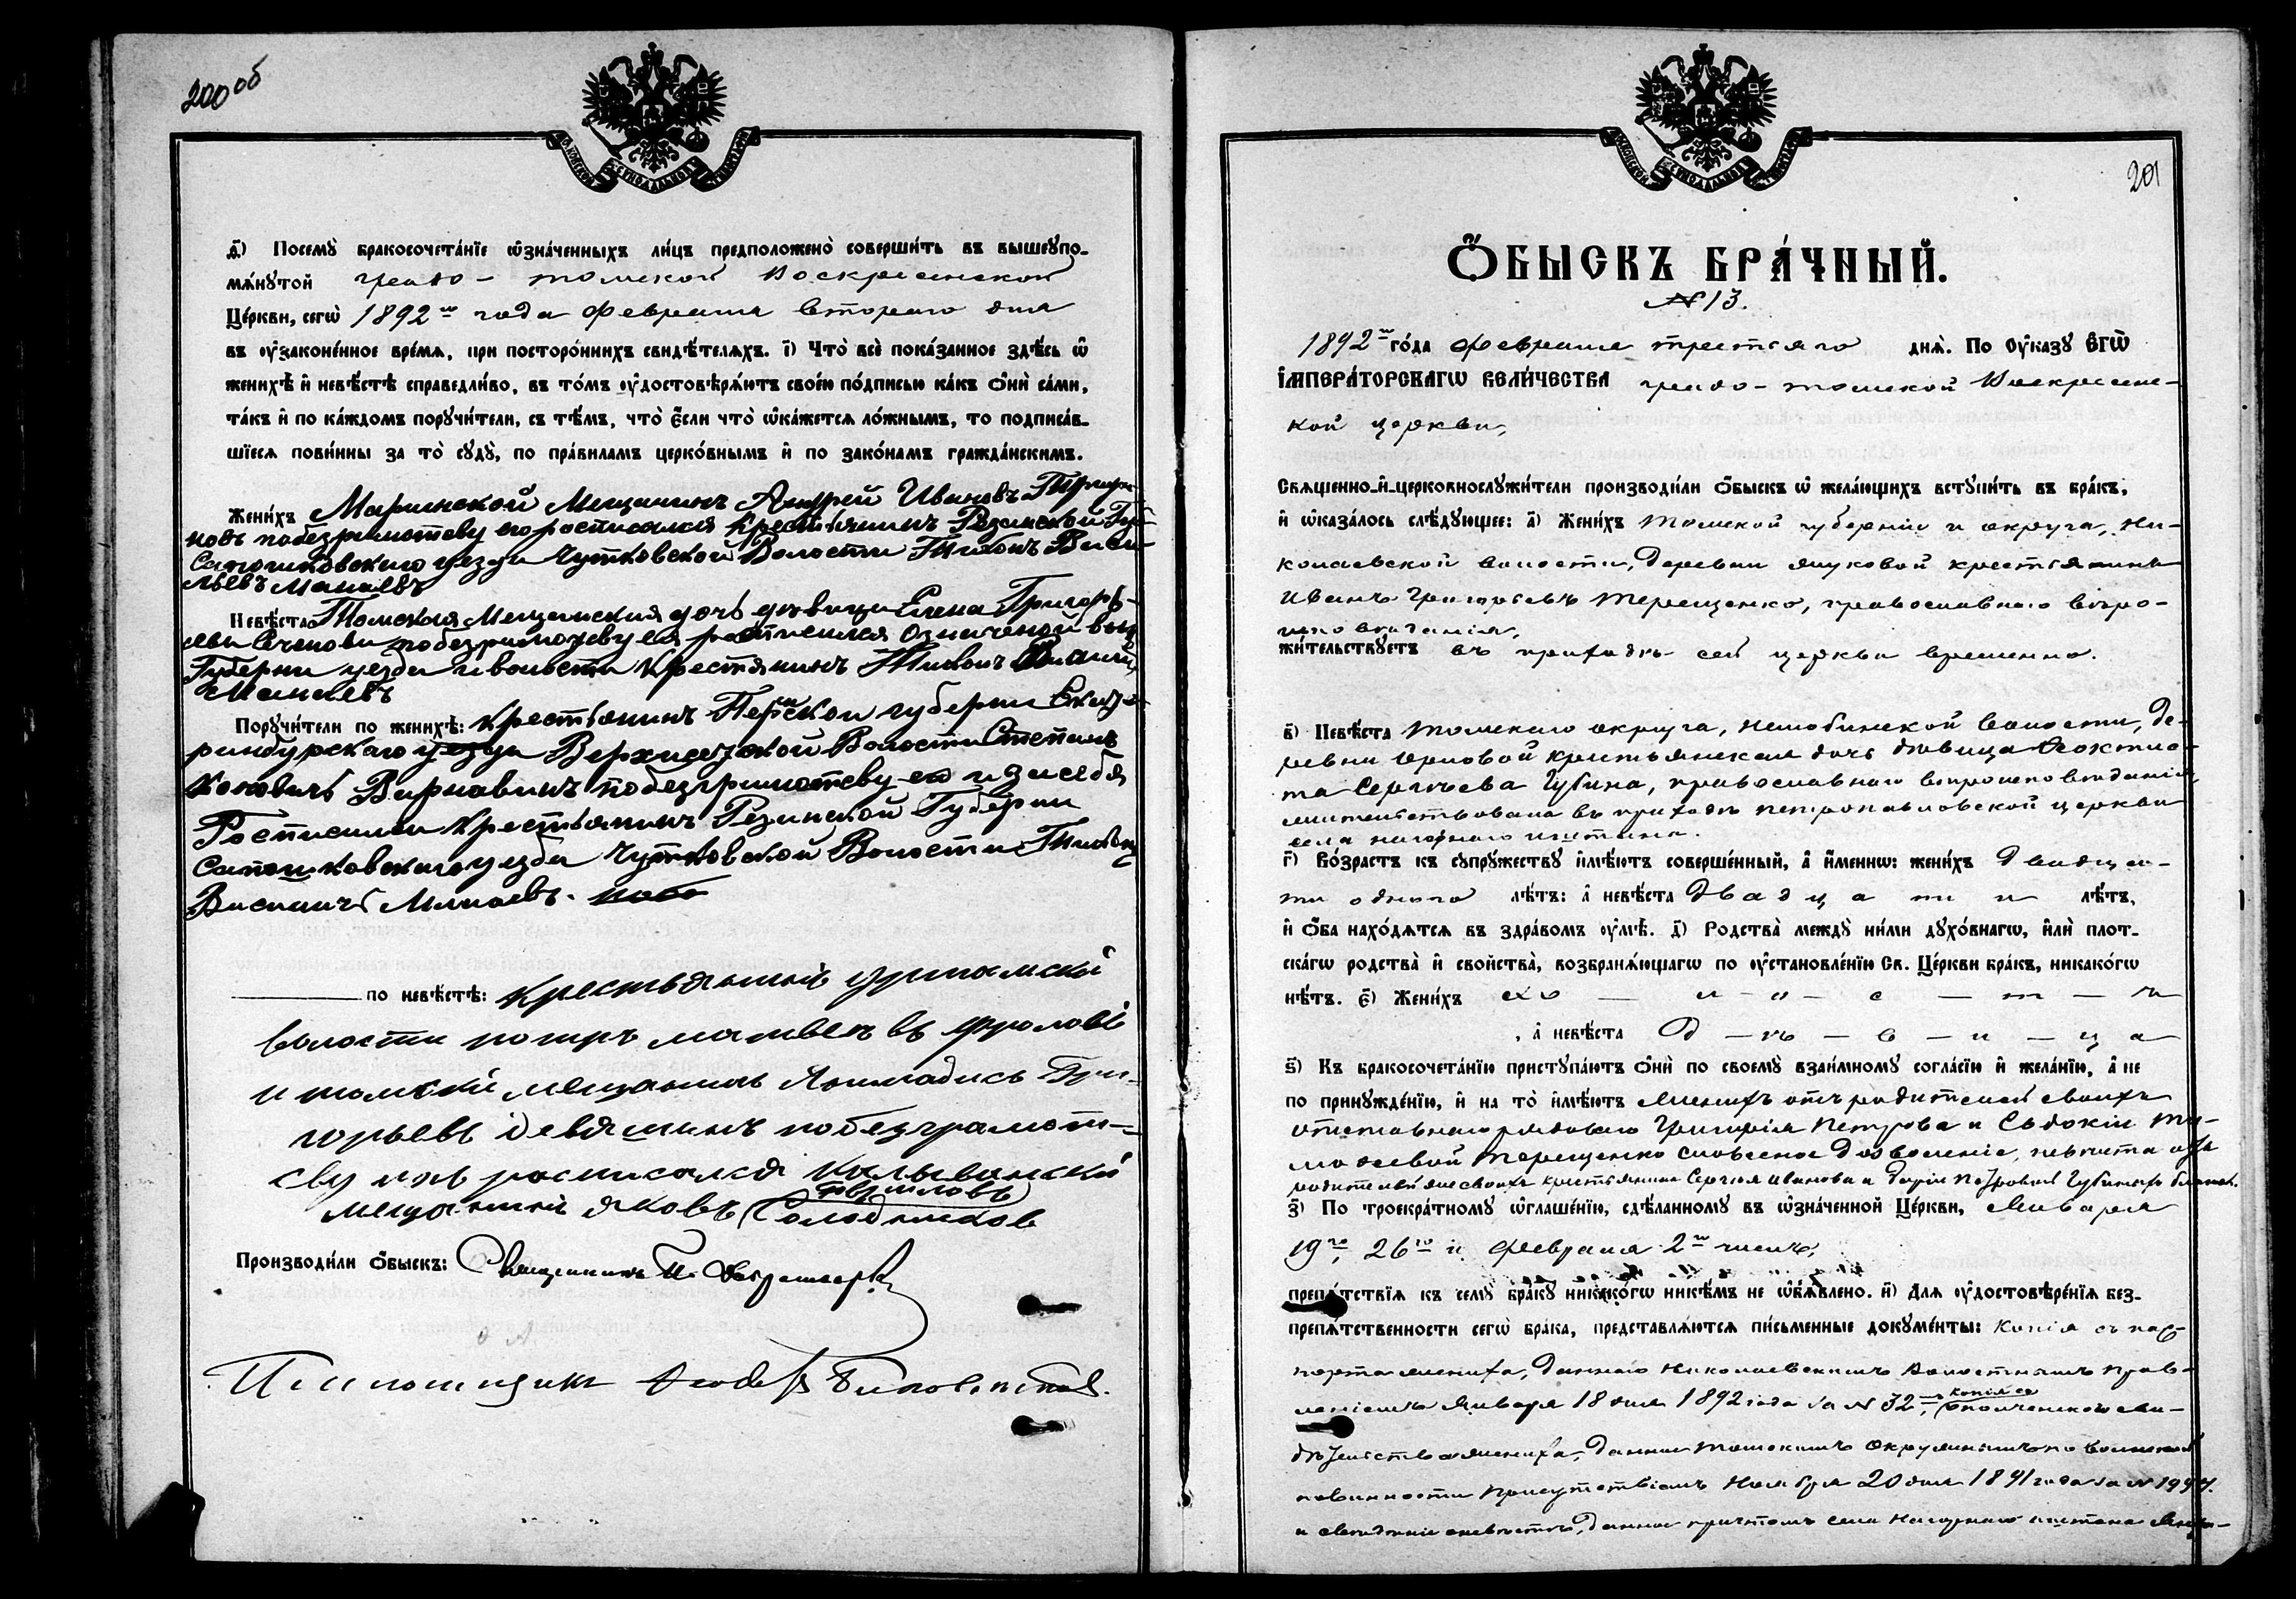 200 об
д҃) Посемꙋ̀ бракосочета́нїе ѡ҆зна́ченныхъ ли́цъ предположено̀ соверши́ть въ вышеꙋпо-
мѧ́нꙋтой градо-томской Воскресенской
Це́ркви, сегѡ̀ 1892го года февраля второго дня
въ ᲂу҆законе́нное вре́мѧ, при посторо́ннихъ свидѣ́телѧхъ. і҃) Что̀ всѐ пока́занное здѣ́сь ѡ҆
женихѣ̀ и҆ невѣ́стѣ справедли́во, въ то́мъ ᲂу҆достовѣрѧ́ютъ свое́ю по́дписью ка́къ ѻ҆нѝ са́ми,
та́къ и҆ по ка́ждомъ порꙋчи́тели, съ тѣ́мъ, что̀ є҆́сли что̀ ѡ҆ка́жетсѧ ло́жнымъ, то подписа́в-
шїесѧ пови́нны за то̀ сꙋдꙋ̀, по пра́виламъ церко́внымъ и҆ по зако́намъ гражда́нскимъ.
Жени́хъ Маринской Мещанинъ Андрей Ивановъ
новъ побезграмотству его росписался Крестьянинъ Резанской Губ-
Сапошковскаго уезда Чутковской Волости Тихонъ Васи-
льевъ Манаевъ
Невѣ́ста Томская Мещанская дочь девица Елена Григорь-
ева побезграмотству ея росписался означеной выш
Губерни уезда и волости Крестянинъ Тихонъ Василий
Манаевъ
Порꙋчи́тели по женихѣ̀: Крестьянинъ Пермской губерни Екате-
ринбурскаго уезда Верхисецкой Волости Степанъ
Варнавинъ побезграмотству его и за себя
Росписался Крестьянинъ Резанской Губерни
Сапошковскаго уезда Чутковской Волости Тихонъ
Василичъ Манаевъ.
по невѣ́стѣ: Крестьянинъ уртамской
волости петръ матвеевъ фроловъ
и томский мещанинъ Гри-
горьевъ девяшинъ побезграмот-
ству ихъ росписался Колыванский
мещанинъ яковъ Солодчиков
Производи́ли ѻ҆́быскъ: Священникъ П.
Псаломщикъ
201
Ѻ҆́БЫСКЪ БРА́ЧНЫЙ.
№ 13.
1892го го́да февраля третьяго днѧ̀. По Оу҆ка́зꙋ Є҆гѡ̀
І҆мпера́торскагѡ вели́чества градо-томской Воскресенс-
кой церкви,
Сваще́нно-и҆-церковнослꙋжи́тели производи́ли ѻ҆́быскъ ѡ҆ жела́ющихъ встꙋпи́ть въ бра́къ,
и҆ ѡ҆каза́лось слѣ́дꙋющее: а҃) Жени́хъ Томской губерніи и округа, Ни-
колаевской волости, деревни Жуковой крестьянинъ
Иванъ Григорьевъ Терещенко, православнаго вѣро-
исповѣданія,
жи́тельствꙋетъ въ приходѣ сей церкви временно.
в҃) Невѣ́ста Томскаго округа, Нелюбинской волости, де-
ревни Орловой крестьянская дочь дѣвица Феокти-
ста Сергѣева Губина, православнаго вѣроисповѣданія,
жительствовала въ приходѣ Петропавловской церкви
села Нагорнаго Иштана.
г҃) Во́зрастъ къ сꙋпрꙋ́жествꙋ и҆мѣ́ютъ соверше́нный, а҆ и҆́менню: жени́хъ двадца-
ти одного лѣ́тъ: а҆ невѣ́ста двадцати лѣ́тъ,
и҆ ѻ҆́ба нахо́дѧтсѧ въ здра́вомъ ᲂу҆мѣ̀. д҃) Родства̀ междꙋ̀ ни́ми дꙋхо́внагѡ, и҆лѝ плот-
ска́гѡ родства̀ и҆ сво́йства̀, возбранѧ́ющагѡ по ᲂу҆становле́нїю Св. Це́ркви бра́къ, никако́гѡ
нѣ́тъ. є҃) Жени́хъ хо — л — о — с — т — ъ
, а҆ невѣ́ста д — ѣ — в — и — ца
ѕ҃) Къ бракосочета́нїю пристꙋпа́ютъ ѻ҆нѝ по своемꙋ̀ взаи́мномꙋ согла́сїю и҆ жела́нїю, а҆ не
по принꙋжде́нїю, и҆ на то̀ и҆мѣ́ютъ женихъ отъ родителей своихъ
отставнаго рядового Григорія Петрова и Евдокіи Ти-
мофеевой Терещенко словесное дозволеніе, невѣста отъ
родителей же своихъ крестьянина Сергѣя Иванова и Даріи Петровой Губиныхъ
з҃) По троекра́тномꙋ ѡ҆глаше́нїю, сдѣ́ланномꙋ въ ѡ҆зна́ченной Це́ркви, Января
19го, 26го и февраля 2го чиселъ,
препѧ́тствїѧ къ семꙋ̀ бра́кꙋ никако́гѡ никѣ́мъ не ѡ҆б̾ѧ́влено. и҃) Длѧ ᲂу҆достовѣре́нїѧ без-
препѧ́тственности сегѡ̀ бра́ка, представлѧ́ютсѧ пи́сьменные докꙋме́нты: Копія съ пас-
порта жениха, даннаго Николаевскимъ Волостнымъ Прав-
леніемъ Января 18 дня 1892 года за № 32, копія со ополченскаго сви-
дѣтельства жениха, данная Томскимъ Окружнымъ по воинской
повинности Присутствіемъ Ноября 20 дня 1891 года за № 1997.
и свѣдѣніе о невѣстѣ, данное причтомъ села Нагорнаго Иштана Янва-